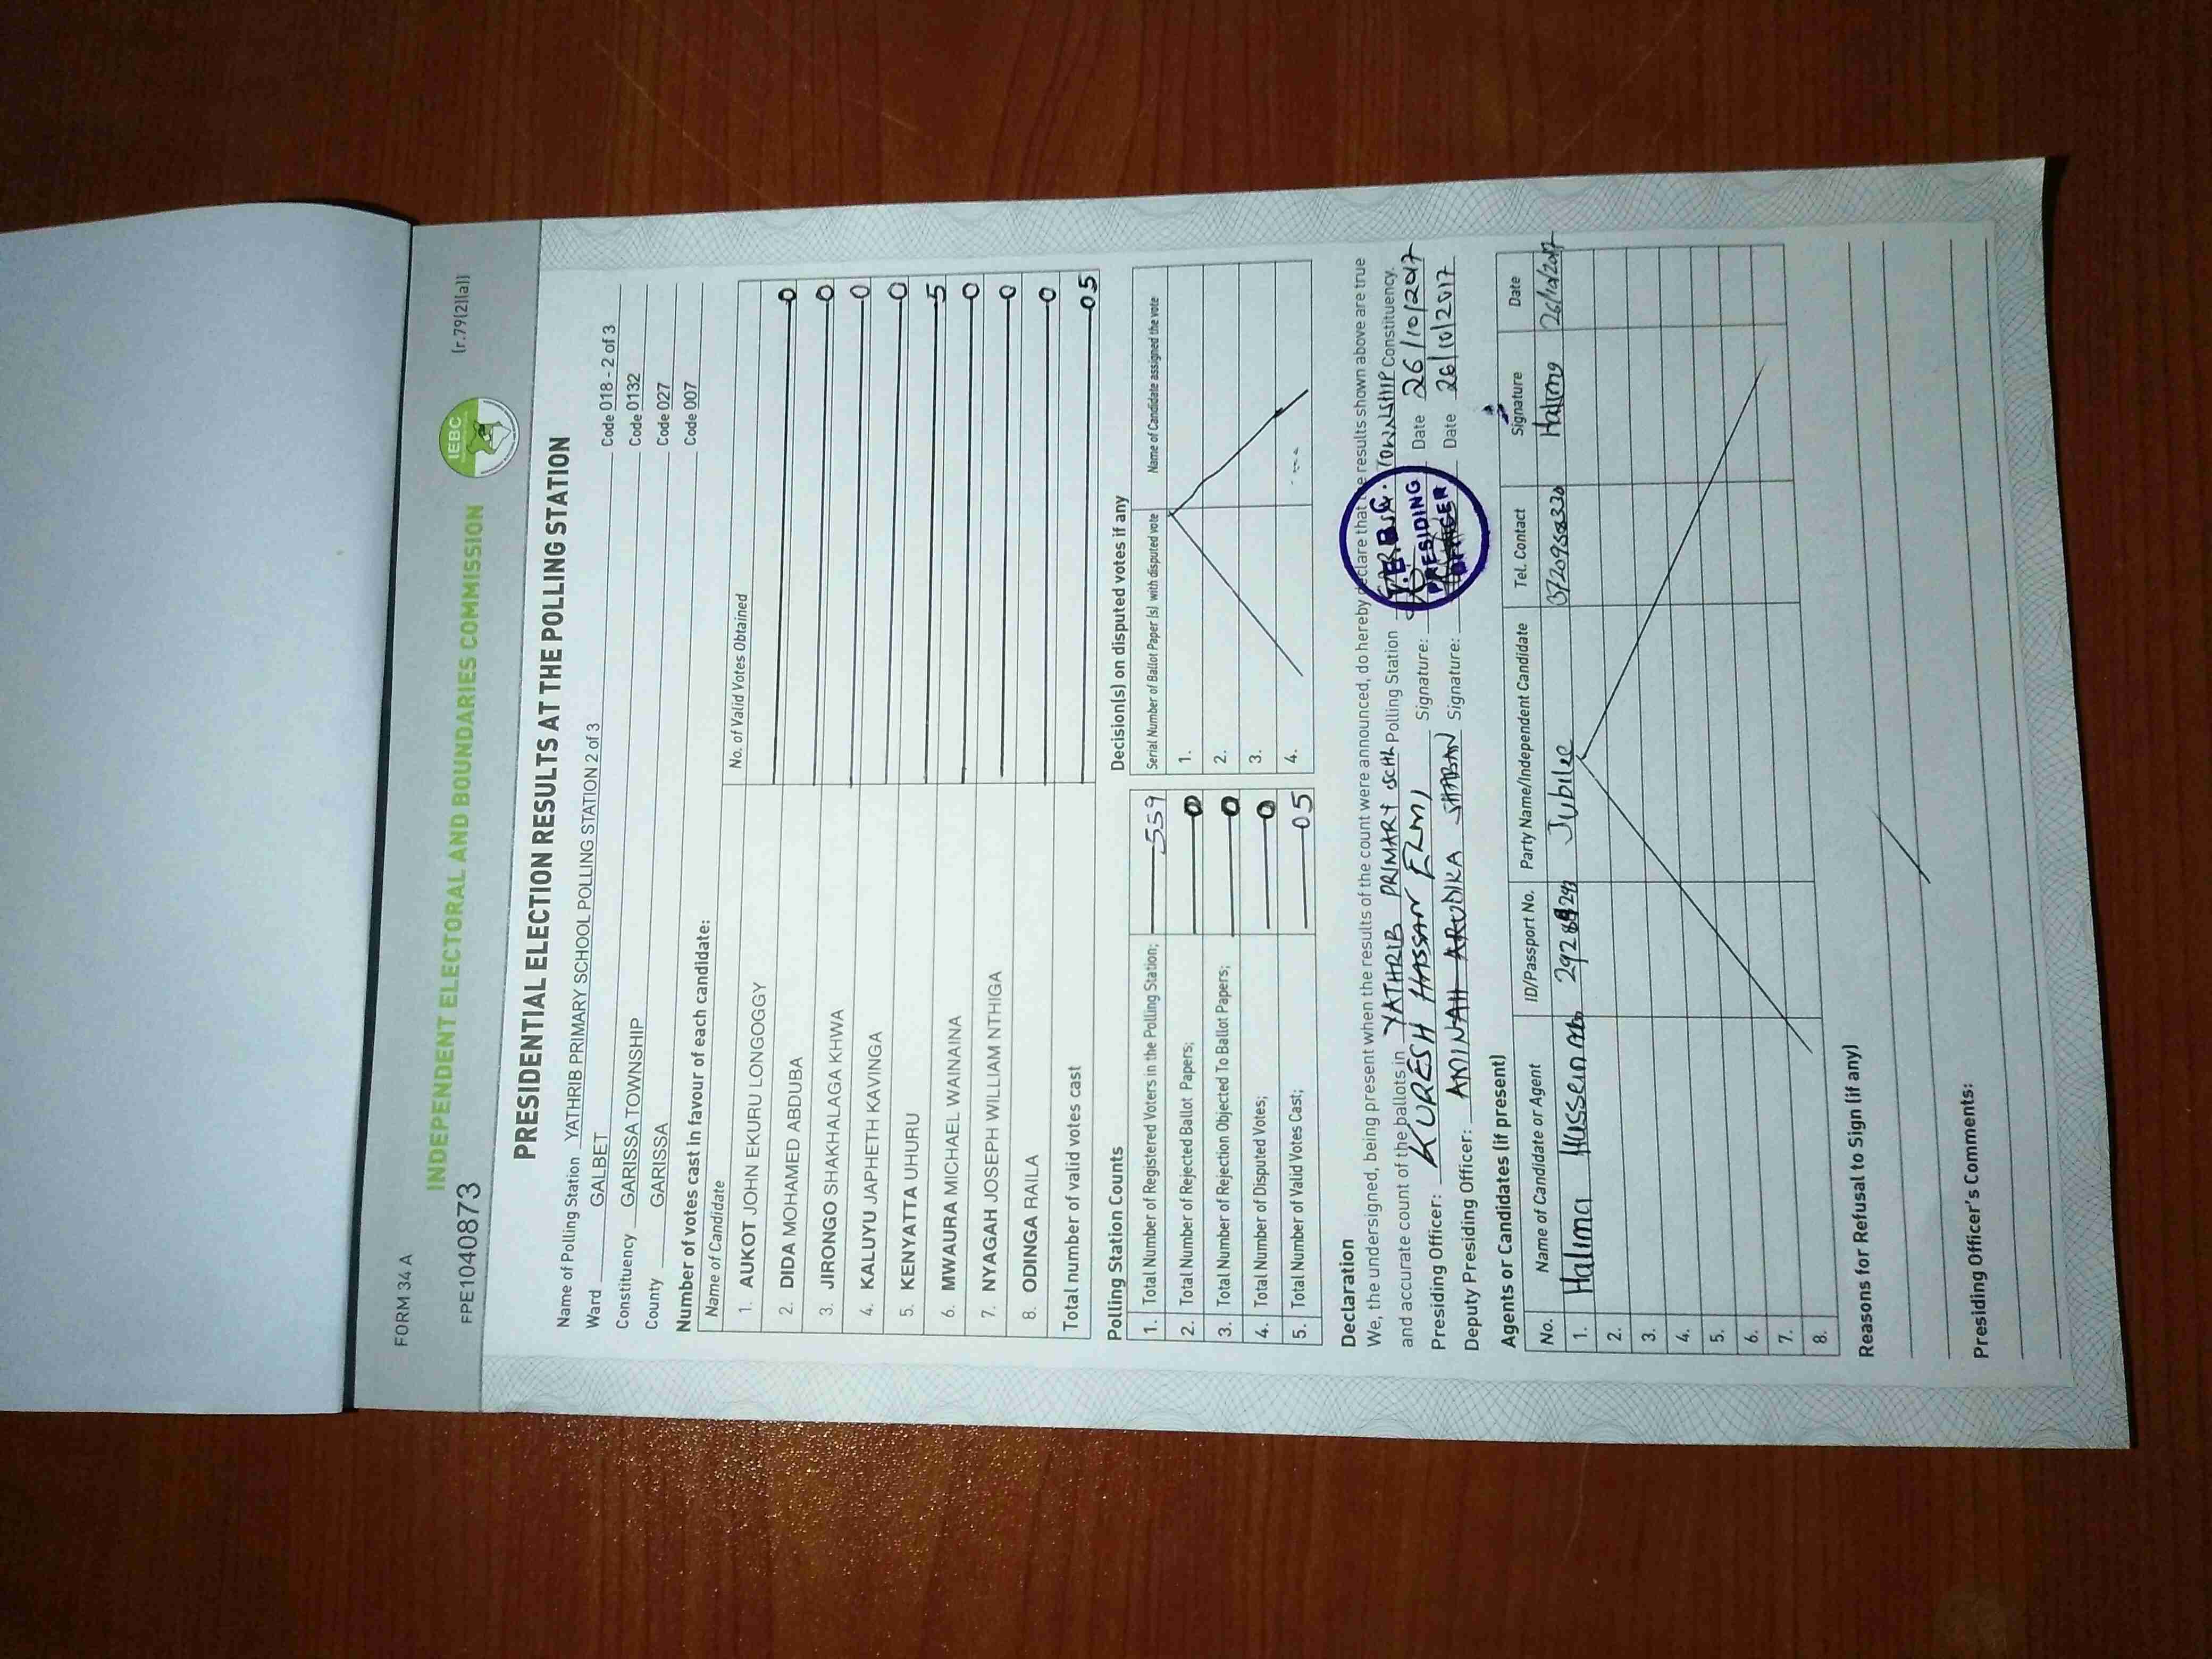 FORM 34 A
(r.79(2)(a))
INDEPENDENT ELECTORAL AND BOUNDARIES COMMISSION
IEBC
FPE1040873
PRESIDENTIAL ELECTION RESULTS AT THE POLLING STATION
Name of Polling Station YATHRIB PRIMARY SCHOOL POLLING STATION 2 of 3 Code 018 - 2 of 3
Ward GALBET Code 0132
Constituency GARISSA TOWNSHIP Code 027
County GARISSA Code 007
Number of votes cast in favour of each candidate:
Name of Candidate No. of Valid Votes Obtained
1. AUKOT JOHN EKURU LONGOGGY 0
2. DIDA MOHAMED ABDUBA 0
3. JIRONGO SHAKHALAGA KHWA 0
4. KALUYU JAPHETH KAVINGA 0
5. KENYATTA UHURU 5
6. MWAURA MICHAEL WAINAINA 0
7. NYAGAH JOSEPH WILLIAM NTHIGA 0
8. ODINGA RAILA 0
Total number of valid votes cast 05
Polling Station Counts
1. Total Number of Registered Voters in the Polling Station; 559
2. Total Number of Rejected Ballot Papers; 0
3. Total Number of Rejection Objected To Ballot Papers; 0
4. Total Number of Disputed Votes; 0
5. Total Number of Valid Votes Cast; 05
Decision(s) on disputed votes if any
Serial Number of Ballot Paper (s) with disputed vote Name of Candidate assigned the vote
1.
2.
3.
4.
Declaration
We, the undersigned, being present when the results of the count were announced, do hereby declare that the results shown above are true
and accurate count of the ballots in YATHRIB PRIMARY SCHL Polling Station TOWNSHIP Constituency.
Presiding Officer: KURESH HASSAN ELMI Signature: Date 26/10/2017
Deputy Presiding Officer: AMINAH ARUDIKA SHABAN Signature: Date 26/10/2017
PRESIDING
Agents or Candidates (if present)
No. Name of Candidate or Agent ID/Passport No. Party Name/Independent Candidate Tel. Contact Signature Date
1. Halima Hussein Jubilee 26/10/2017
2.
3.
4.
5.
6.
7.
8.
Reasons for Refusal to Sign (if any)
Presiding Officer's Comments: